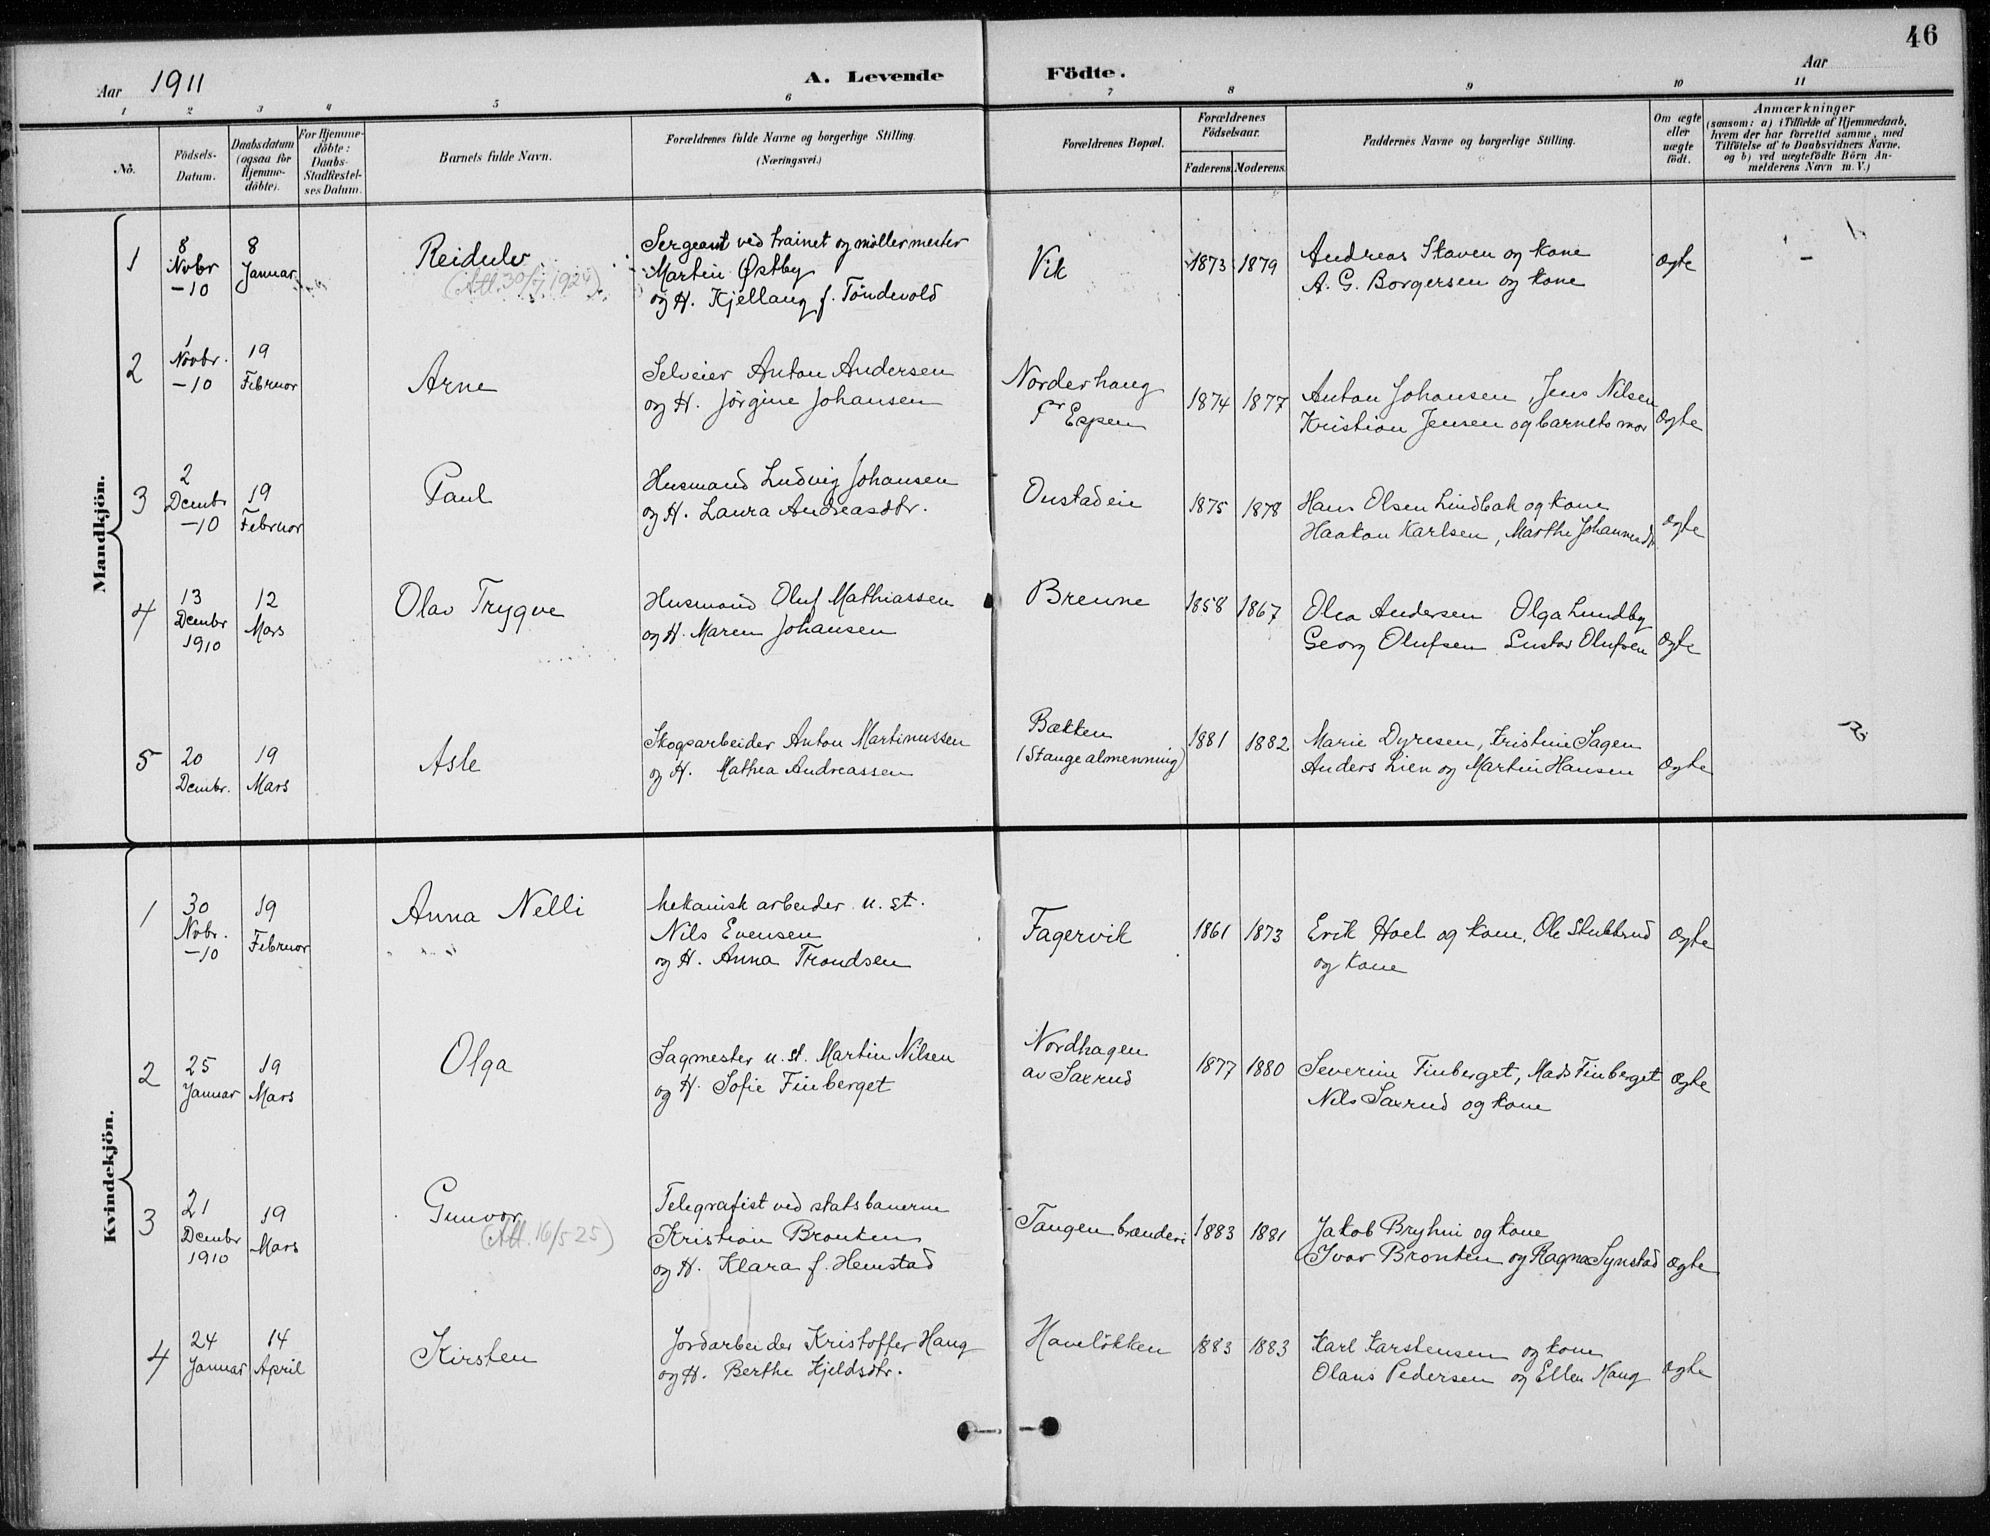 46
Aar 1911
A. Levende Födte.
Aar
1 2 3 4 5 6 7 8 9 10 11
No.
Födsels-Datum.
Daabsdatum (ogsaa for Hjemme-döbte).
For Hjemme-döbte: Daabs-Stadfæstel-ses Datum.
Barnets fulde Navn.
Forældrenes fulde Navne og borgerlige Stilling. (Næringsvei.)
Forældrenes Bopæl.
Forældrenes Födselsaar.
Faderens. Moderens.
Faddernes Navne og borgerlige Stilling.
Om ægte eller uægte födt.
Anmærkninger
(saasom: a) i Tilfælde af Hjemmedaab, hvem der har forrettet samme, med Tilföielse af to Daabsvidners Navne, og b) ved uægtefödte Börn An-melderens Navn m. V.)
Mandkjön.
1
8 Novbr -10
8 Januar
Reidulv
(Att. 30/7 1924)
Sergeant ved trainet og möllermester
Martin Østby
og H. Kjellaug f. Töndevold
Vik
1873 1879
Andreas Staven og kone
A. G. Borgersen og kone
Ægte
–
2
1 Novbr. -10
19 Februar
Arne
Selveier Anton Andersen
og H. Jörgine Johansen
Norderhaug
Espen
1874 1877
Anton Johansen, Jens Nilsen
Kristian Jensen og barnets mor
Ægte
3
2 Decmbr -10
19 Februar
Paul
Husmand Ludvig Johansen
og H. Laura Andreasdtr.
Oustadeie
1875 1878
Hans Olsen Lindbak og kone
Haakon Karlsen, Marthe Johannesdtr.
Ægte
4
13 Decmbr 1910
12 Mars
Olav Trygve
Husmand Oluf Mathiassen
og H. Maren Johansen
Brenne
1858 1867
Olea Andersen Olga Lundby
Georg Olufsen Gustav Olufsen
Ægte
5
20 Decmbr.
19 Mars
Asle
Skogsarbeider Anton Martinussen
og H. Mathea Andreassen
Bækken
(Stange almenning)
1881 1882
Marie Dyresen, Kristine Sagen
Anders Lien og Martin Hansen
Ægte
Kvindekjön.
1
30 Nvbr. -10
19 Februar
Anna Nelli
Mekanisk arbeider u. st.
Nils Evensen
og H. Anna Trondsen
Fagervik
1861 1873
Erik Hoel og kone, Ole Stubberud
og kone
Ægte
2
25 Januar
19 Mars
Olga
Sagmester u. st. Martin Nilsen
og H. Sofie Finberget
Nordhagen
av Saxrud
1877 1880
Severine Finberget, Mads Finberget
Nils Saxrud og kone
Ægte
3
21 Decmbr 1910
19 Mars
Gunvor
(Att. 16/5 25)
Telegrafist ved statsbanerne
Kristian Bronken
og H. Klara f. Hemstad
Tangen brænderi
1883 1881
Jakob Bryhni og kone
Ivar Bronken og Ragna Synstad
Ægte
4
24 Januar
14 April
Kirsten
Jordarbeider Kristoffer Haug
og H. Berthe Kjeldsdtr.
Havelökken
1883 1883
Karl Karstensen og kone
Olaus Pedersen og Ellen Haug
Ægte